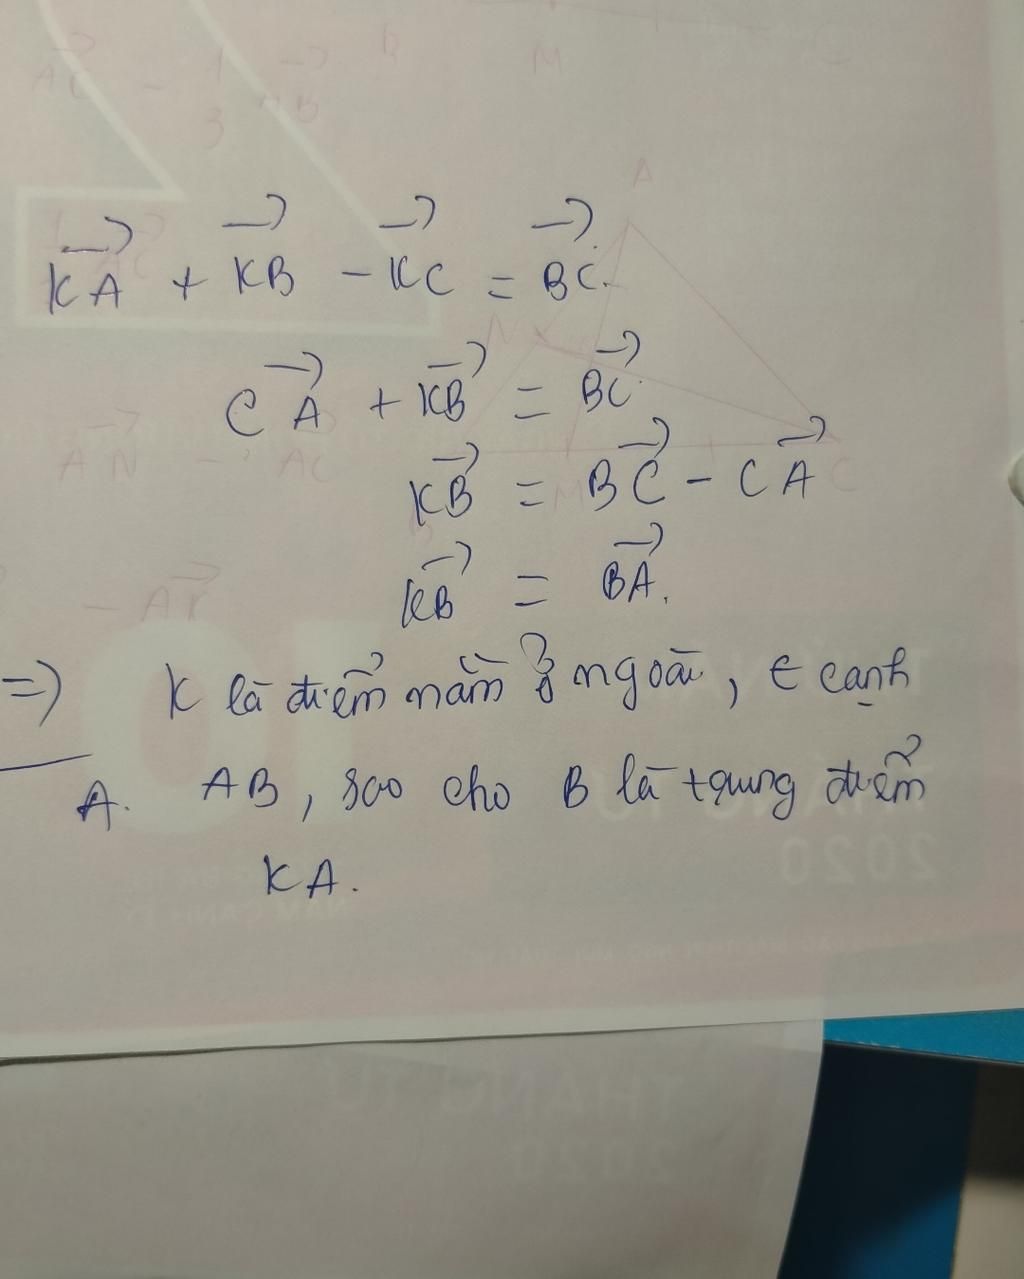 KA⃗ + KB⃗ - KC⃗ = BC⃗.
CA⃗ + KB⃗ = BC⃗
KB⃗ = BC⃗ - CA⃗
KB⃗ = BA⃗.
=> K là điểm nằm ở ngoài, ∈ cạnh
A. AB, sao cho B là trung điểm
KA.